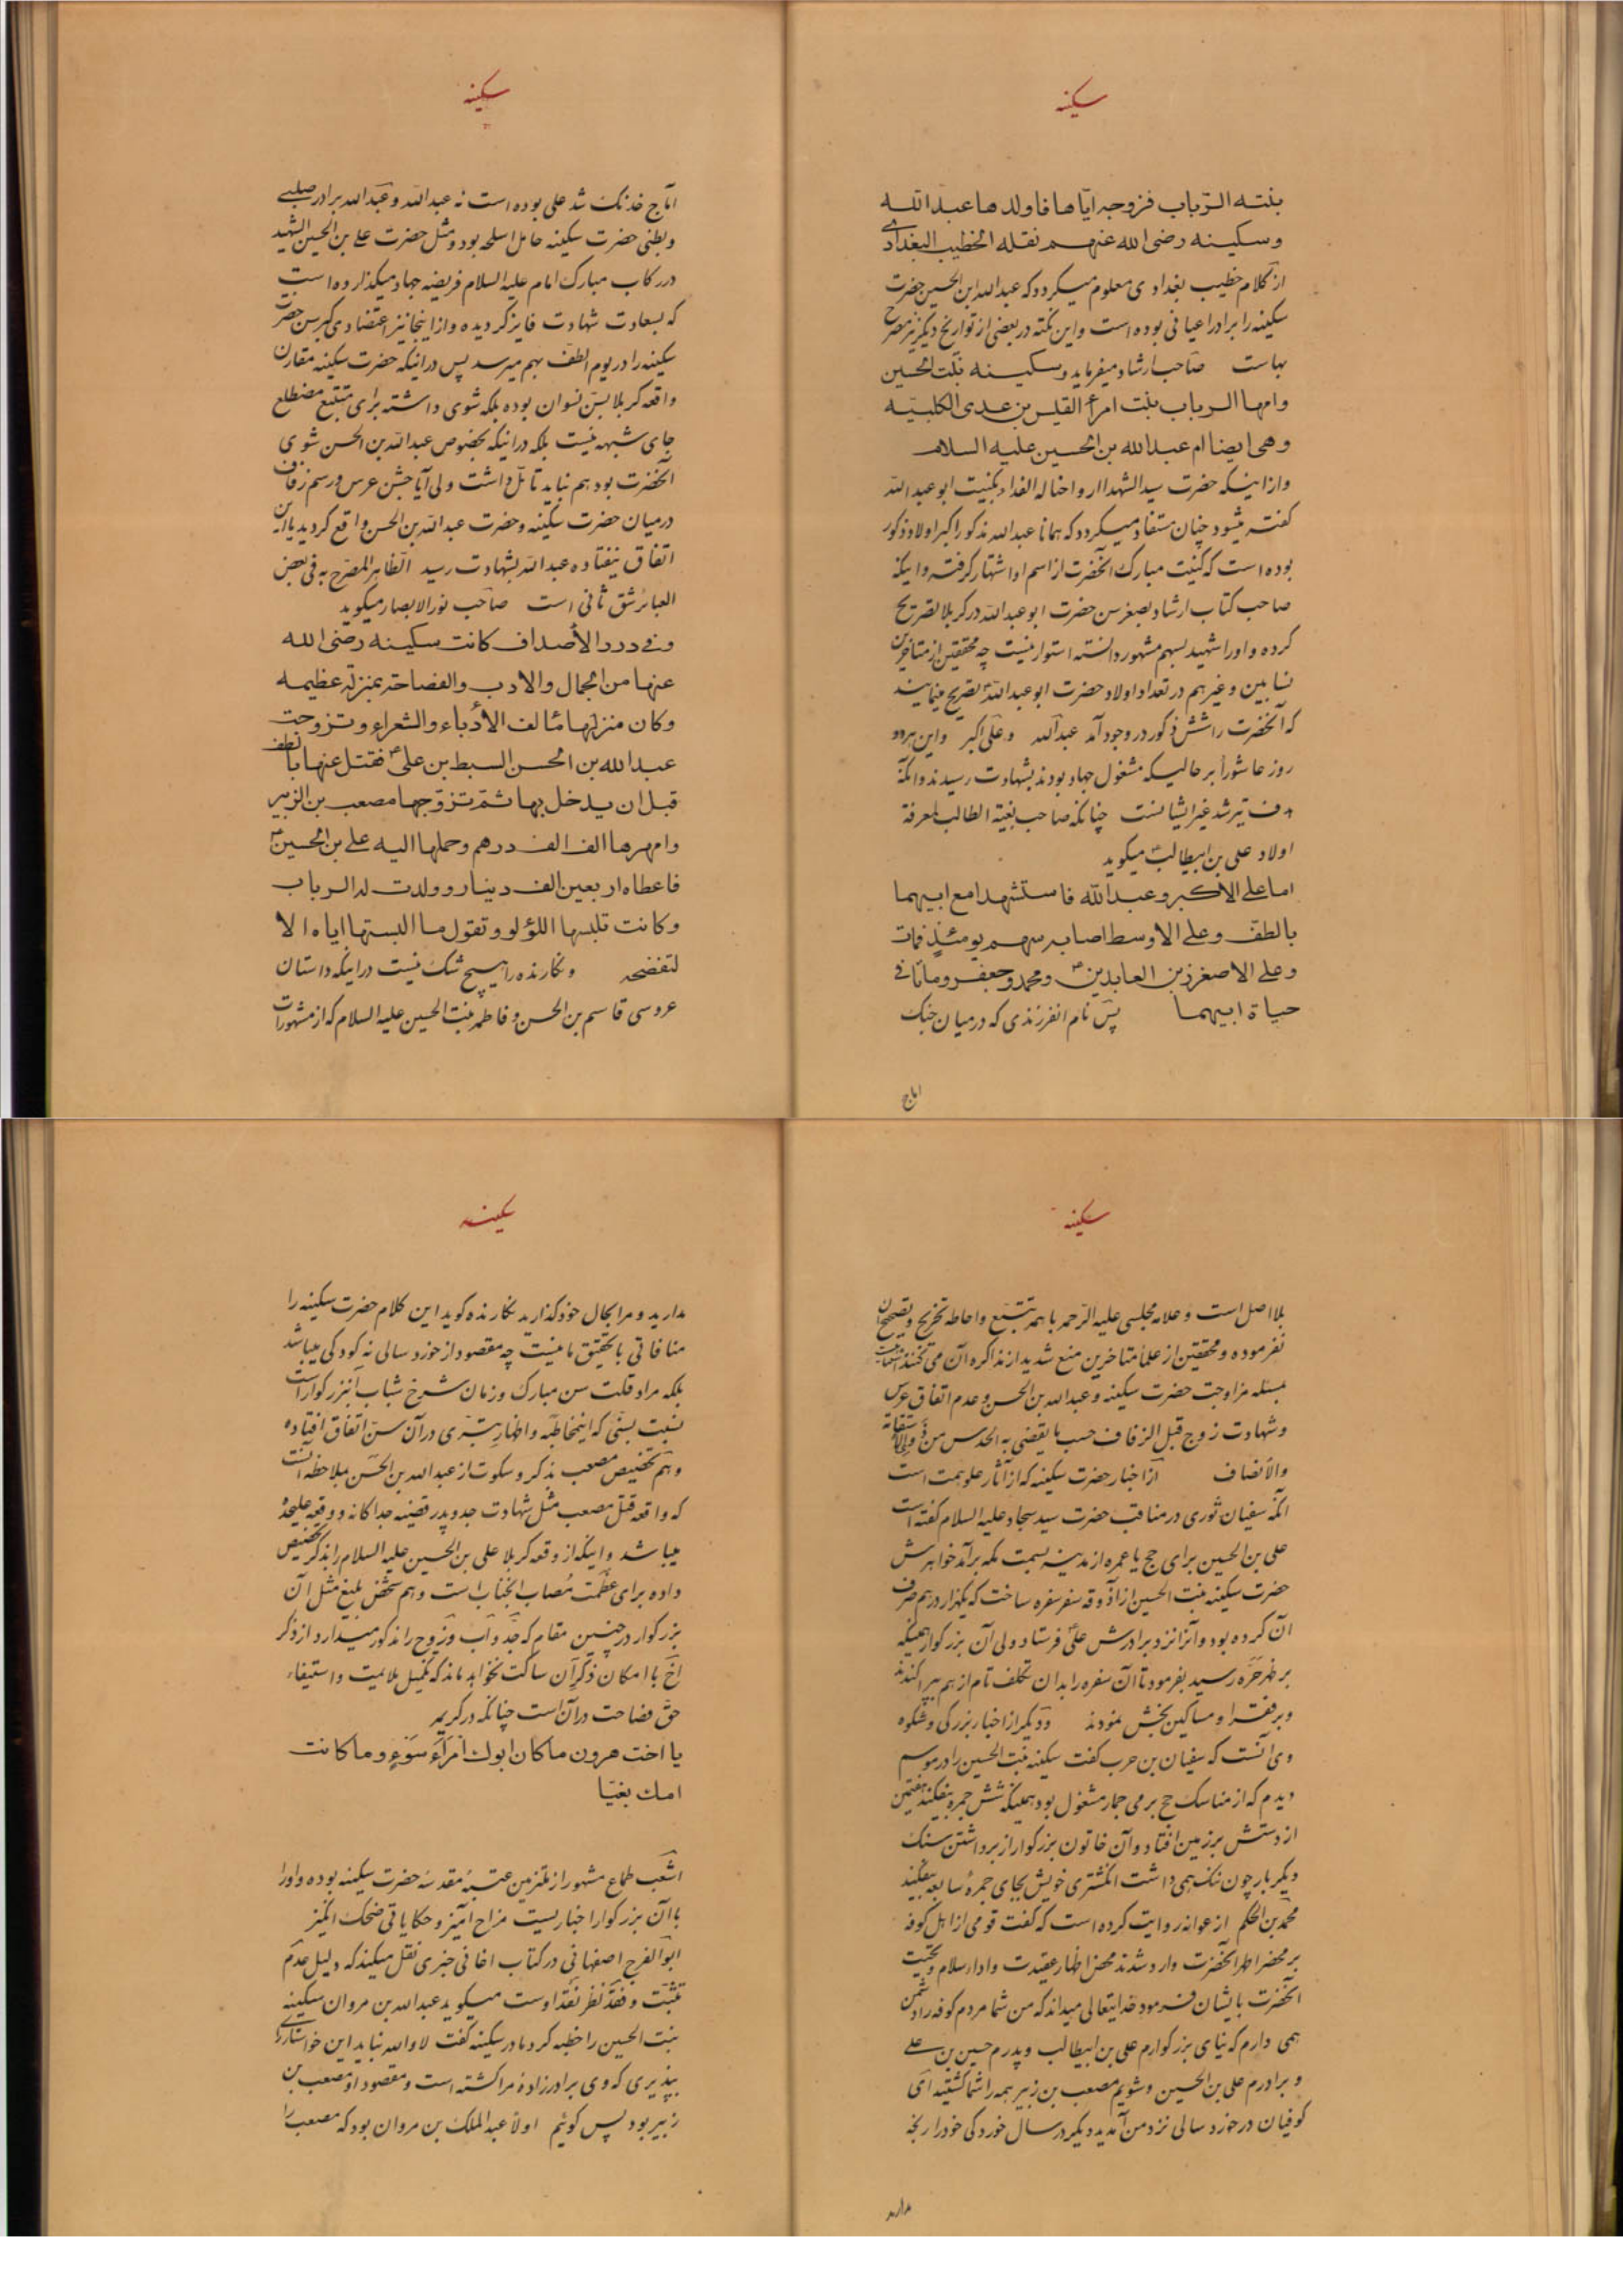 سکینه
بنته الرباب فزوجه ایاها فاولدها عبدالله
وسکینه رضی الله عنهم نقله الخطیب البغدادی
از کلام خطیب بغدادی معلوم میکردد که عبدالله ابن الحسین حضرت
سکینه را برادر اعیانی بوده است واین نکته در بعضی از تواریخ دیگر نیز مصرح
بهاست صاحب ارشاد میفرماید وسکینه بنت الحسین
وامها الرباب بنت امرء القیس بن عدی الکلبیه
وهی ایضا ام عبدالله بن الحسین علیه السلام
واز اینکه حضرت سید الشهدا ارواحنا له الفداء بکنیت ابو عبدالله
گفته میشود چنان مستفاد میکردد که همانا عبدالله مذکور اکبر اولاد ذکور
بوده است که کنیت مبارک آنحضرت از اسم او اشتهار کرفته واینکه
صاحب کتاب ارشاد بصغر سن حضرت ابو عبدالله در کربلا تصریح
کرده واورا شهید بسهم مشهور دانسته استوار نیست چه محققین از متاخرین
نسابین وغیرهم در تعداد اولاد حضرت ابو عبدالله تصریح مینمایند
که آنحضرت را شش ذکور در وجود آمد عبدالله وعلی اکبر واین هردو
روز عاشورا بر حالیکه مشغول جهاد بودند بشهادت رسیدند وانکه
هدف تیر شد غیر ایشانست چنانکه صاحب بغیة الطالب لمعرفة
اولاد علی بن ابیطالب میکوید
اما علی الاکبر وعبدالله فاستشهدا مع ابیهما
بالطف وعلی الاوسط اصابه سهم یومئذ فمات
وعلی الاصغر زین العابدین ومحمد وجعفر وماتا فی
حیاة ابیهما پس نام انفرزندی که در میان جنک
اماج
سکینه
اماج خدنک شد علی بوده است نه عبدالله وعبدالله برادر صلبی
وبطنی حضرت سکینه حامل اسلحه بود ومثل حضرت علی بن الحسین الشهید
در رکاب مبارک امام علیه السلام فریضه جهاد میکذارده است
که بسعادت شهادت فایز کردیده واز اینجا نیز اعتضادی کبر سن حضرت
سکینه را در یوم الطف بهم میرسد پس در اینکه حضرت سکینه مقارن
واقعه کربلا بسن نسوان بوده بلکه شوی داشته برای متتبع مضطلع
جای شبهه نیست بلکه در اینکه بخصوص عبدالله بن الحسن شوی
آنحضرت بود هم نباید تامل داشت ولی آیا جشن عرس ورسم زفاف
درمیان حضرت سکینه وحضرت عبدالله بن الحسن واقع کردید یا این
اتفاق نیفتاده عبدالله بشهادت رسید الظاهر المصرح به فی بعض
العبائر شق ثانی است صاحب نور الابصار میکوید
وفی درر الأصداف کانت سکینه رضی الله
عنها من الجمال والادب والفصاحة بمنزلة عظیمه
وکان منزلها مألف الأدباء والشعراء وتزوجت
عبدالله بن الحسن السبط بن علی فقتل عنها بالطف
قبل ان یدخل بها ثم تزوجها مصعب بن الزبیر
وامهرها الف الف درهم وحملها الیه علی بن الحسین
فاعطاه اربعین الف دینار وولدت له الرباب
وکانت تلبسها اللؤلو وتقول ما البستها ایاه الا
لتفضحه ونکارنده را هیچ شک نیست در اینکه داستان
عروسی قاسم بن الحسن وفاطمه بنت الحسین علیه السلام که از مشهورات
سکینه
بلا اصل است وعلامه مجلسی علیه الرحمه با همه تتبع واحاطه تخریج وتصحیح آن
نفرموده ومحققین از علماء متاخرین منع شدید از مذاکره آن می کنند
بمسئله مزاوجت حضرت سکینه وعبدالله بن الحسن وعدم اتفاق عرس
وشهادت زوج قبل الزفاف حسب ما یقضی به الحدس من
والانصاف از اخبار حضرت سکینه که از آثار علو همت است
آنکه سفیان ثوری در مناقب حضرت سید سجاد علیه السلام گفته است
علی بن الحسین برای حج یا عمره از مدینه بسمت مکه برآمد خواهرش
حضرت سکینه بنت الحسین از آذوقه سفر سفره ساخت که یکهزار درهم صرف
آن کرده بود وآنرا نزد برادرش علی فرستاد ولی آن بزرکوار همینکه
بر ظهر حره رسید بفرمود تا آن سفره را بدان تکلف تام از هم بپراکندند
وبر فقرا ومساکین بخش نمودند ودیگر از اخبار بزرکی وشکوه
وی آنست که سفیان بن حرب گفت سکینه بنت الحسین را در موسم
دیدم که از مناسک حج برمی جمار مشغول بود همینکه شش جمره بیفکند هفتمین
از دستش برزمین افتاد وآن خاتون بزرکوار از برداشتن سنک
دیگر بار چون ننک همی داشت انکشتری خویش بجای جمرهٔ سابعه بیفکند
محمد بن الحکم از عوانه روایت کرده است که گفت قومی از اهل کوفه
بر محضر اطهر آنحضرت وارد شدند محض اظهار عقیدت واداء سلام وتحیت
آنحضرت بایشان فرمود خدایتعالی میداند که من شما مردم کوفه را دشمن
همی دارم که نیای بزرکوارم علی بن ابیطالب وپدرم حسین بن علی
وبرادرم علی بن الحسین وشویم مصعب بن زبیر همه را شما کشتید ای
کوفیان در خورد سالی نزد من آمدید ودیگر در سال خوردکی خود را رنجه
مدارید
سکینه
مدارید ومرا بحال خود گذارید نکارنده کوید این کلام حضرت سکینه را
منافاتی با تحقیق ما نیست چه مقصود از خورد سالی نه کودکی میباشد
بلکه مراد قلت سن مبارک وزمان شرخ شباب آنبزرکوار است
نسبت بسنی که اینخاطبه واظهار تبری در آن سن اتفاق افتاده
وهم تخصیص مصعب بذکر وسکوت از عبدالله بن الحسن بملاحظه آنست
که واقعه قتل مصعب مثل شهادت جد وپدر قضیه جداکانه ووقعه علیحده
میباشد واینکه از وقعه کربلا علی بن الحسین علیه السلام را بذکر تخصیص
داده برای عظمت مصاب آنجناب است وهم شخص بلیغ مثل آن
بزرکوار در چنین مقام که جد واب وزوج را مذکور میدارد از ذکر
اخ با امکان ذکر آن ساکت نخواهد ماند که تکمیل ملایمت واستیفاء
حق فصاحت در آن است چنانکه در کریمه
یا اخت هرون ما کان ابوك امرأ سوء وما کانت
امك بغیا
اشعب طماع مشهور از ملتزمین عتبهٔ مقدسه حضرت سکینه بوده واورا
با آن بزرکوار اخباریست مزاح آمیز وحکایاتی ضحک انگیز
ابوالفرج اصفهانی در کتاب اغانی خبری نقل میکند که دلیل عدم
تثبت وفقد نظر نقد اوست میکوید عبدالله بن مروان سکینه
بنت الحسین را خطبه کرد مادر سکینه گفت لا والله نباید این خواستاری
بپذیری که وی برادرزادهٔ مرا کشته است ومقصود او مصعب بن
زبیر بود پس گوئیم اولاً عبدالملک بن مروان بود که مصعب را